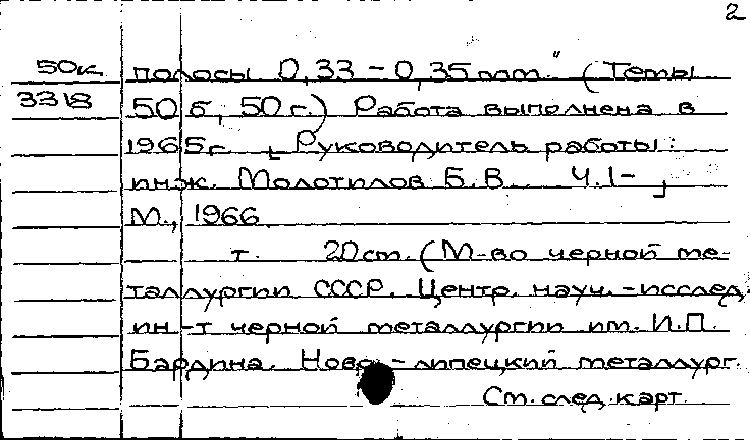 2
50к полосы 0,33-0,35мм." (Темы
3318 50б, 50г.) Работа выполнена в
1965г. Руководитель работы:
инж. Молотилов Б.В. Ч.1-
М., 1966.
т. 20см. (М-во черной ме-
таллургии СССР. Центр. науч.-исслед.
ин-т черной металлургии им. И.П.
Бардина. Ново-липецкий металлург.
См. след. карт.